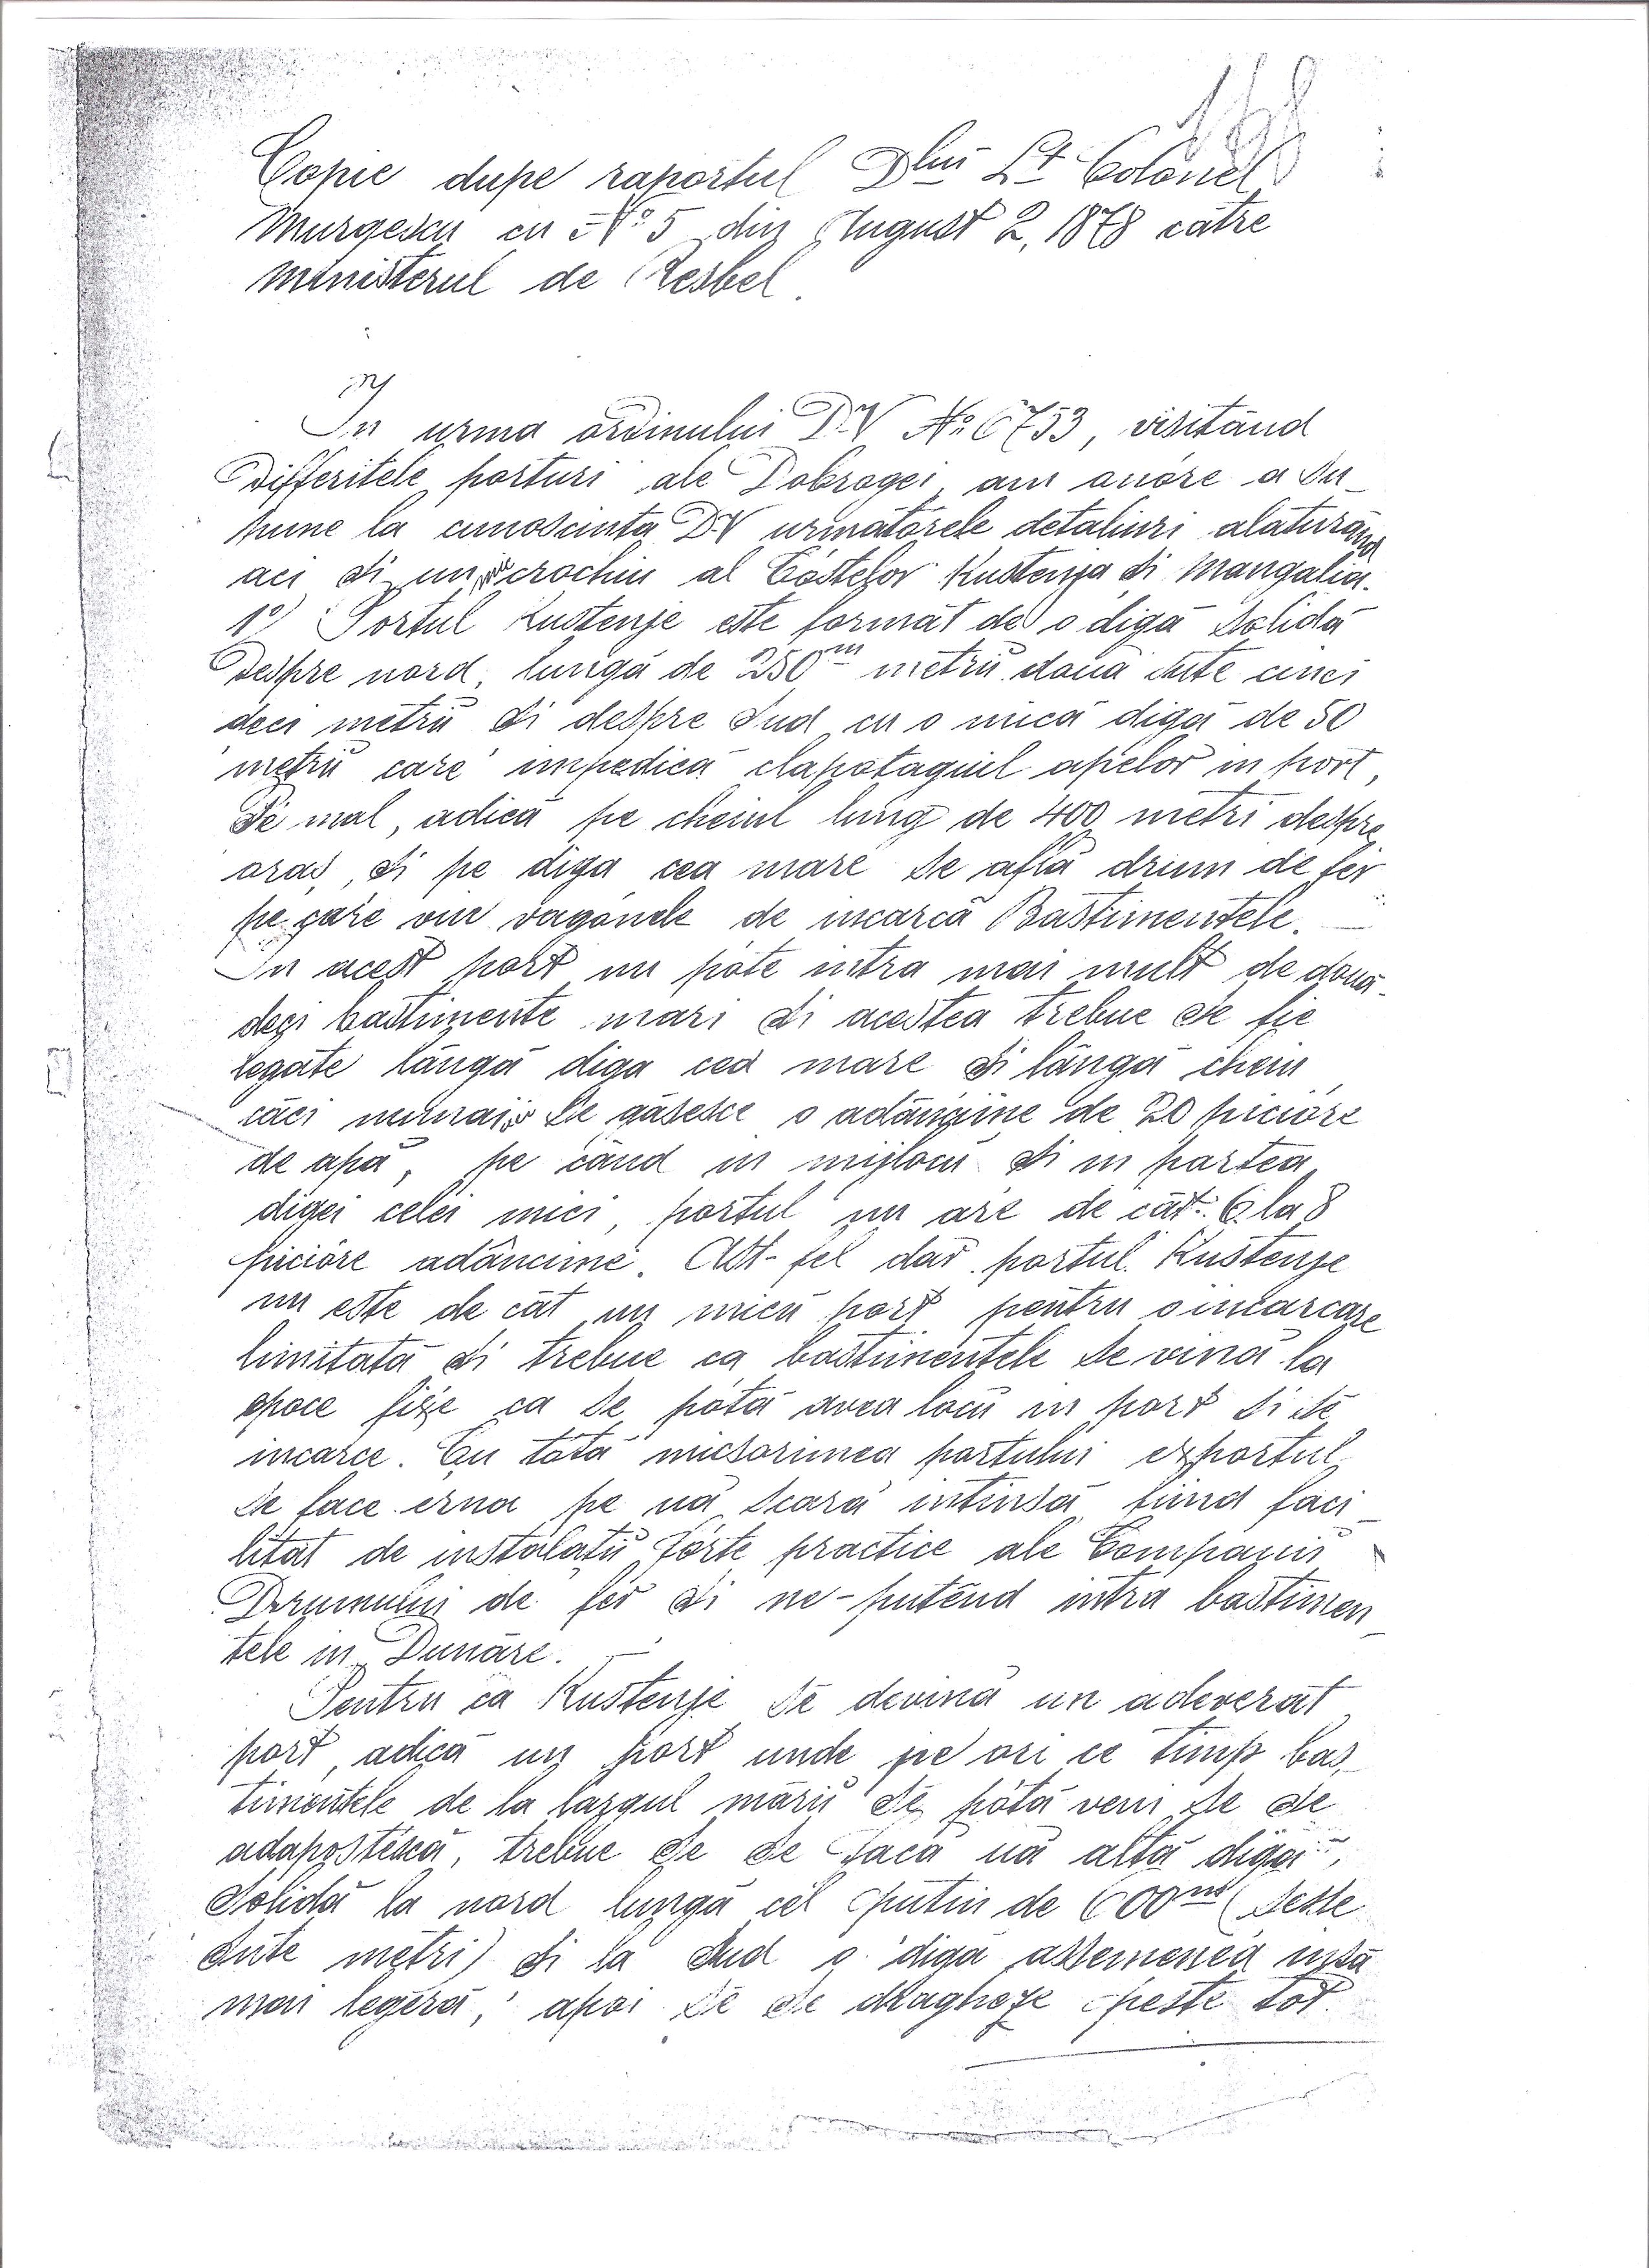 168
Copie dupe raportul Dlui Lt Colonel
Murgescu cu No 5 din August 2, 1878 către
Ministerul de Resbel.
In urma ordinului D-V No 6753, visitând
Differitele porturi ale Dobrogei, am onóre a su-
pune la cunoscinta D-V următórele detaliuri alăturând
aci si un mic crochiu al Cóstelor Kustenja si Mangalia.
1o) Portul Kustenje este format de o digă solidă
Despre nord, lungă de 250m metrii două sute cinci
deci metrii si despre Sud cu o mică digă de 50
metrii care impedică clapotagiul apelor in port,
Pe mal, adică pe cheiul lung de 400 metri despre
oraș, si pe diga cea mare se află drum de fer
pe care vin vagónele de incarcă Bastimentele.
In acest port nu póte intra mai mult de două-
deci bastimente mari si acestea trebue se fie
legate lângă diga cea mare si lângă cheiu,
căci numai se găsesce o adâncime de 20 picióre
de apă, pe când in mijlocŭ si in partea
digei celei mici, portul nu are de cât 6 la 8
picióre adâncime. Ast-fel dar portul Kustenje
nu este de cât un micŭ port pentru o incarcare
limitată si trebue ca bastimentele se vină la
epoce fixe ca se pótă avea locŭ in port si sĕ
incarce. Cu tótă micsorimea portului exportul
se face erna pe uă scară intinsă fiind faci-
litat de instalații fórte practice ale Companii
Drumului de fer si ne-putênd intra bastimen-
tele in Dunăre.
Pentru ca Kustenje sĕ devină un adeverat
port, adică un port unde pe ori ce timp bas-
timentele de la largul mării sĕ pótă veni se se
adapostéscă, trebue se se facă uă altă digă
solidă la nord lungă cel putin de 600m (sesse
sute metri) si la Sud o digă assemenea insă
mai legéră, apoi sĕ se dragheze peste tot